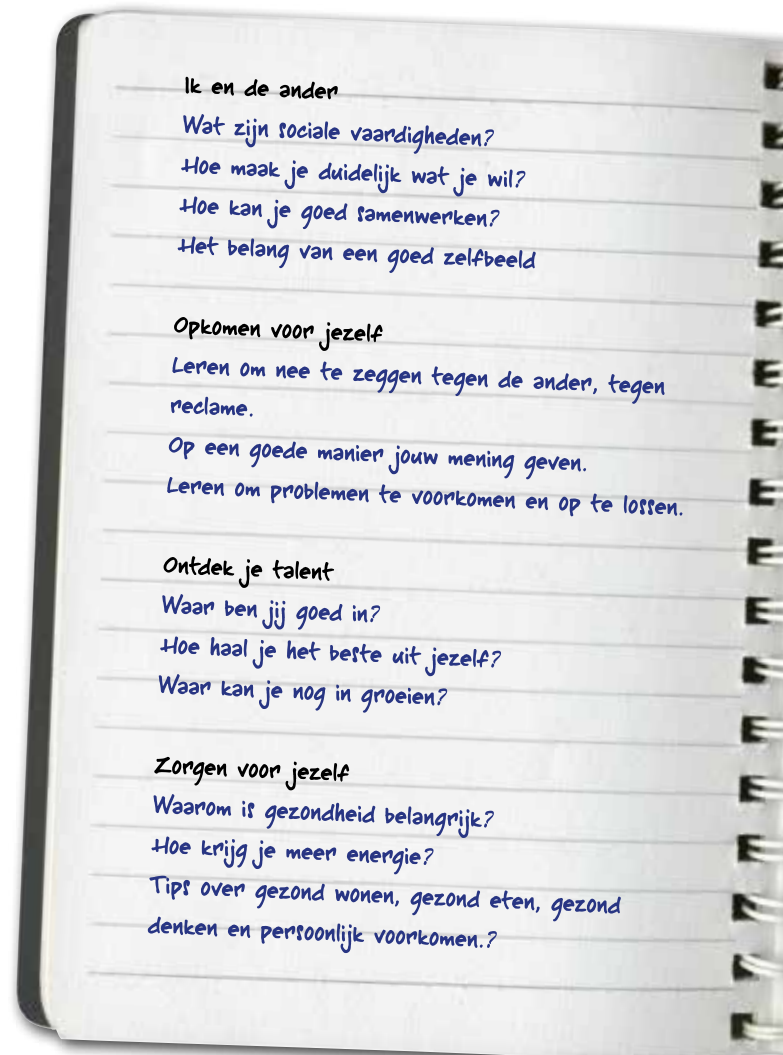 Ik en de ander
Wat zijn sociale vaardigheden?
Hoe maak je duidelijk wat je wil?
Hoe kan je goed samenwerken?
Het belang van een goed zelfbeeld
Opkomen voor jezelf
Leren om nee te zeggen tegen de ander, tegen
reclame.
Op een goede manier jouw mening geven.
Leren om problemen te voorkomen en op te lossen.
Ontdek je talent
Waar ben jij goed in?
Hoe haal je het beste uit jezelf?
Waar kan je nog in groeien?
Zorgen voor jezelf
Waarom is gezondheid belangrijk?
Hoe krijg je meer energie?
Tips over gezond wonen, gezond eten, gezond
denken en persoonlijk voorkomen.?